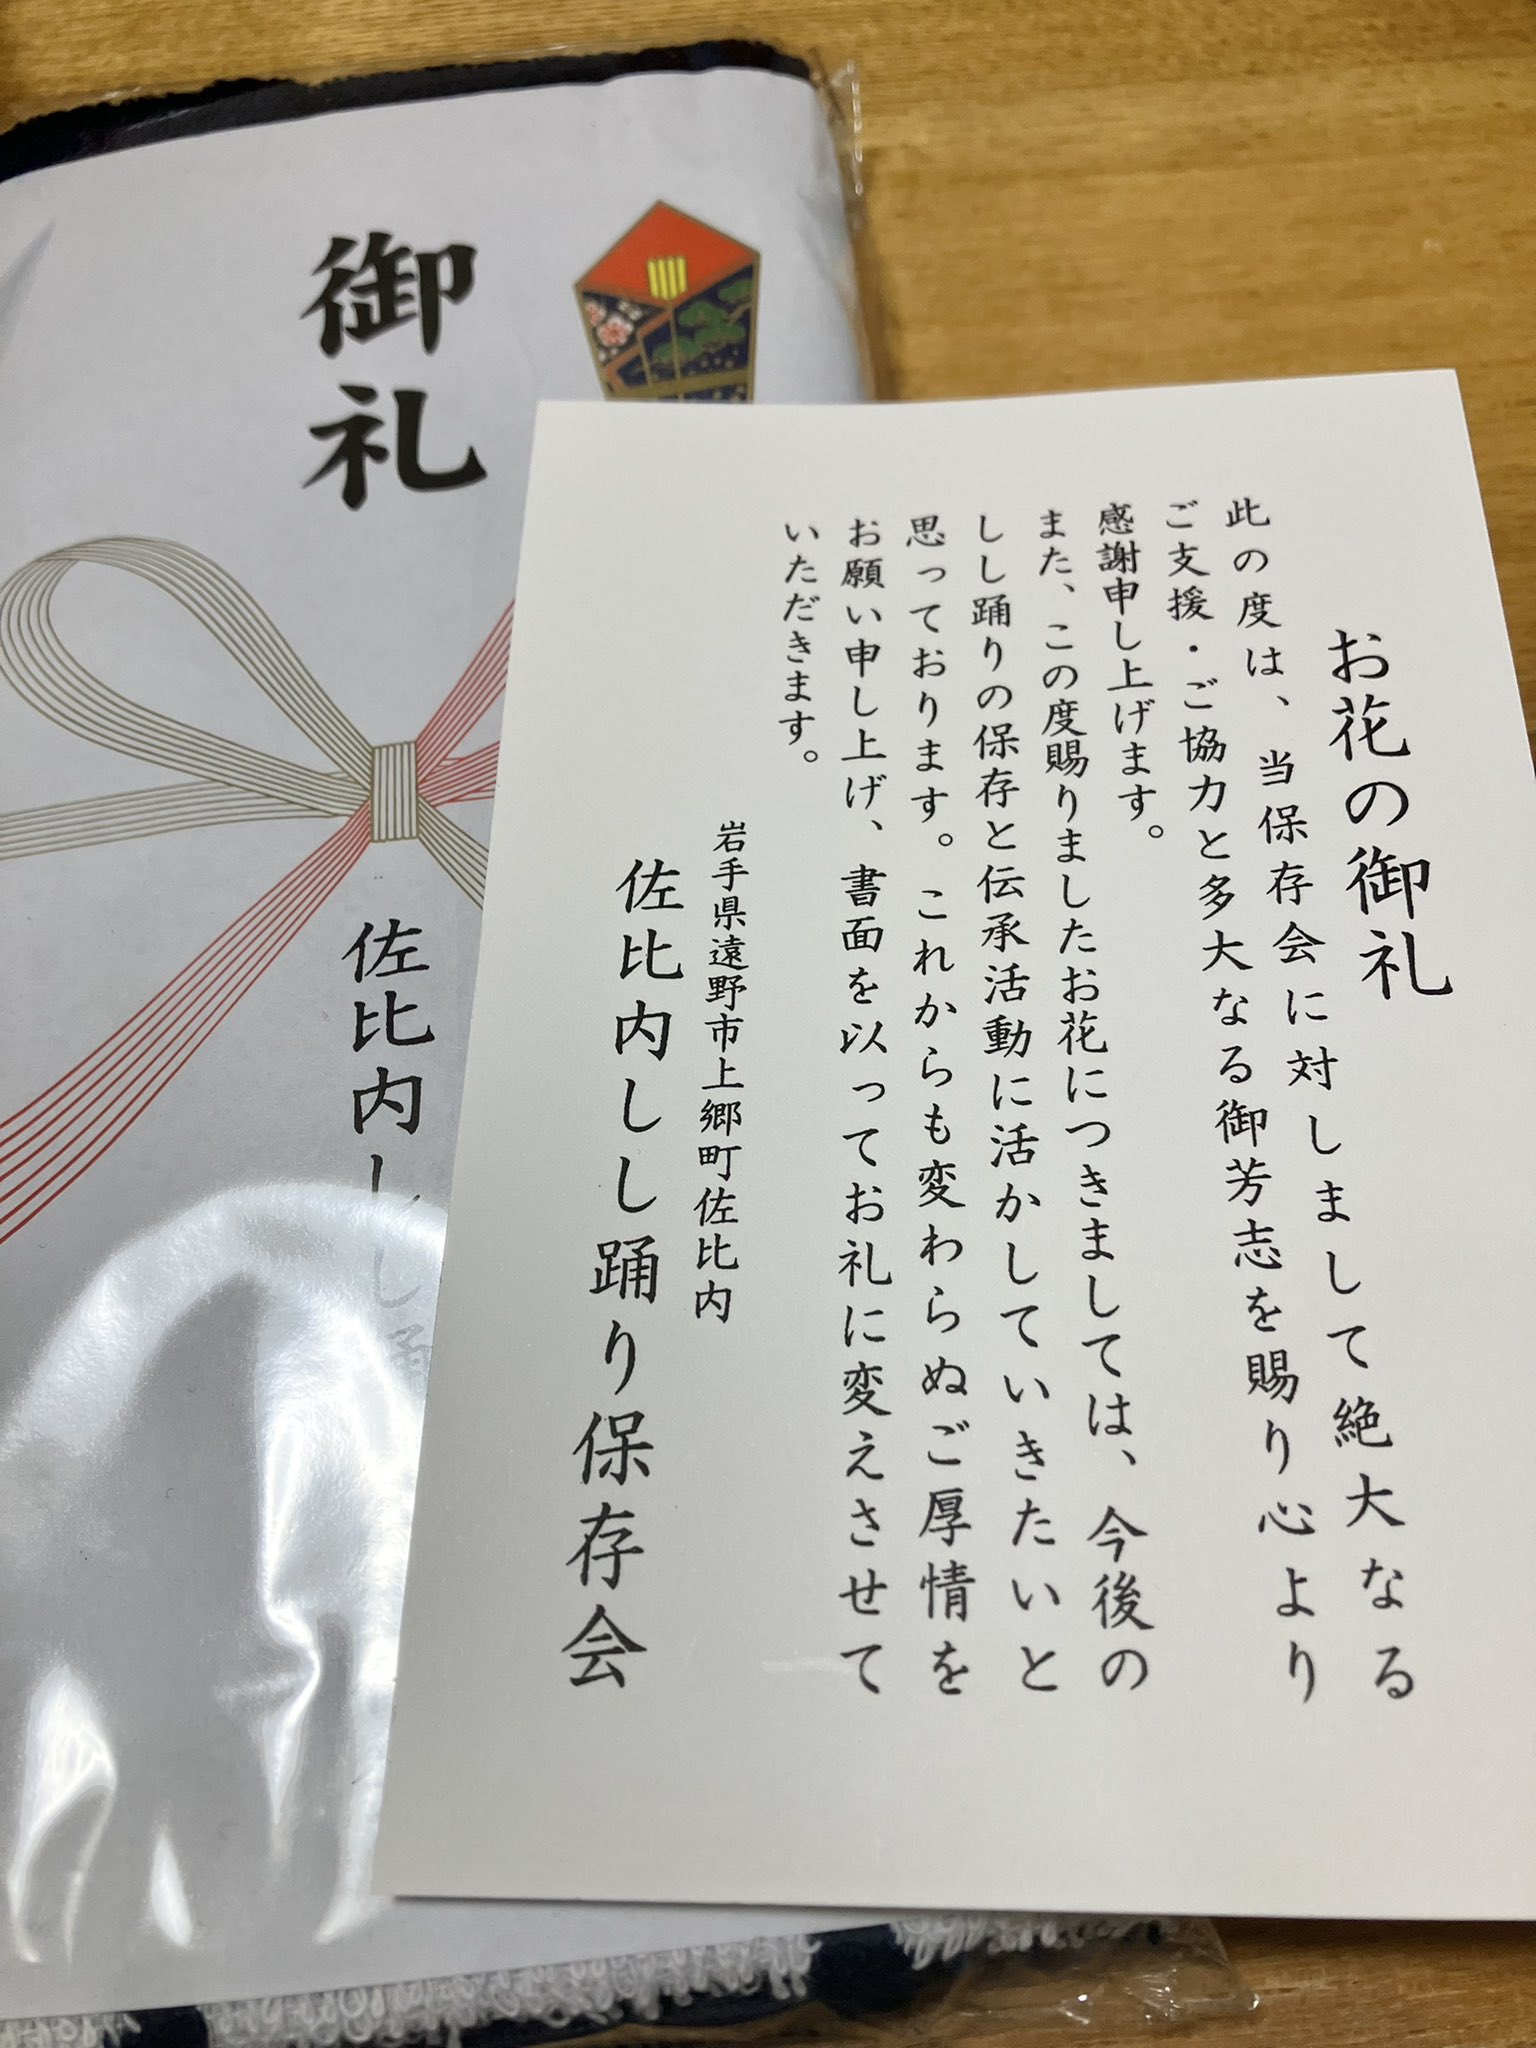 お花の御礼
此の度は、当保存会に対しまして絶大なる
ご支援・ご協力と多大なる御芳志を賜り心より
感謝申し上げます。
また、この度賜りましたお花につきましては、今後の
しし踊りの保存と伝承活動に活かしていきたいと
思っております。これからも変わらぬご厚情を
お願い申し上げ、書面を以ってお礼に変えさせて
いただきます。
岩手県遠野市上郷町佐比内
佐比内しし踊り保存会
御礼
佐比内しし踊